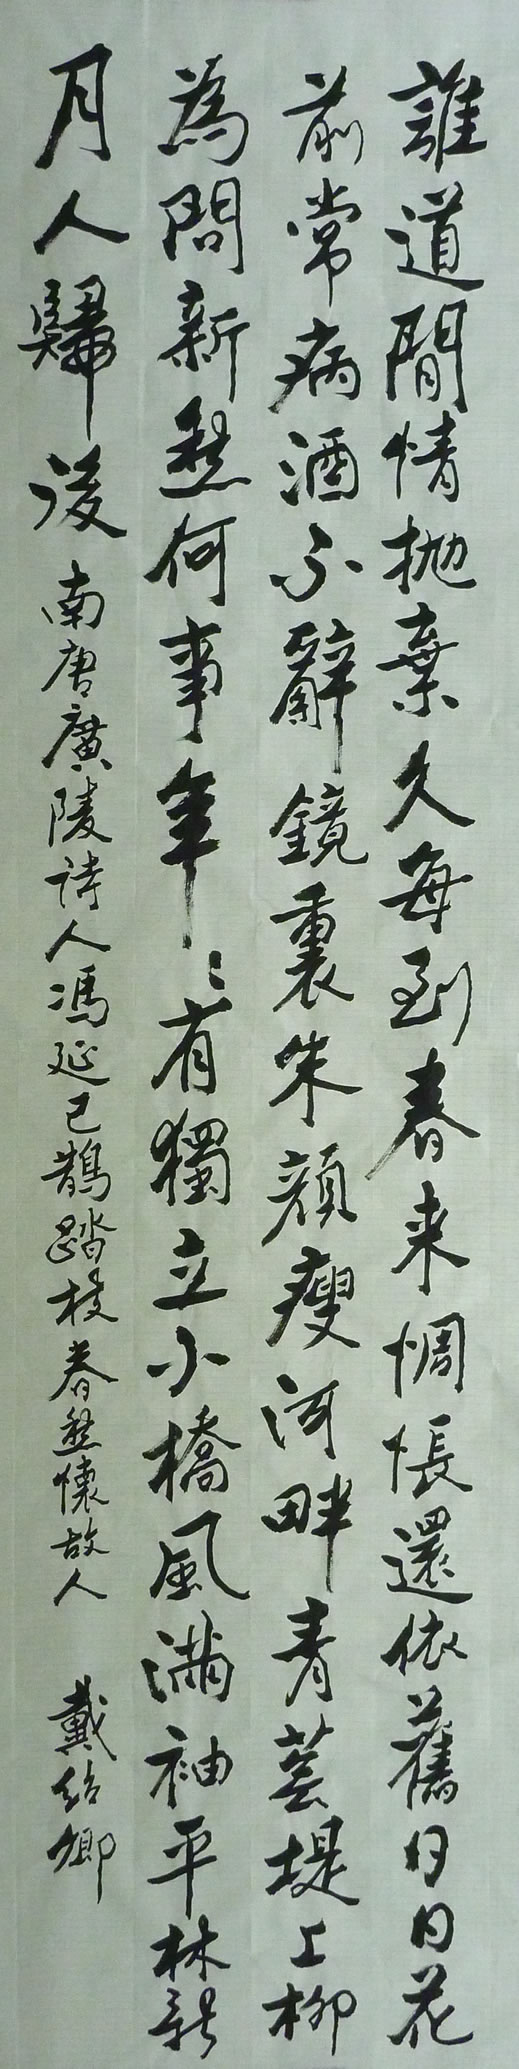 誰道閒情抛棄久每到春来惆悵還依舊日日花
前常病酒不辭鏡裏朱顔瘦河畔青蕪堤上柳
為問新愁何事年〻有獨立小橋風滿袖平林新
月人歸後
南唐廣陵詩人馮延巳鵲踏枝春愁懷故人
戴紹卿